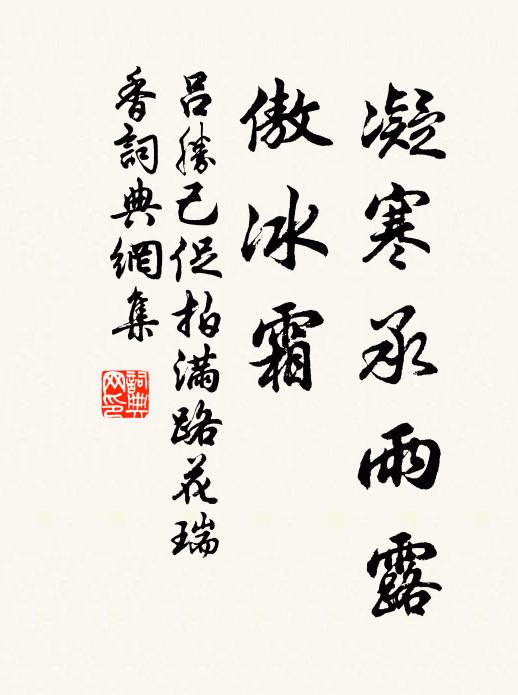 凝寒承雨露
傲冰霜
吕勝己促拍满路花瑞
香詞典網集
詞典
网印